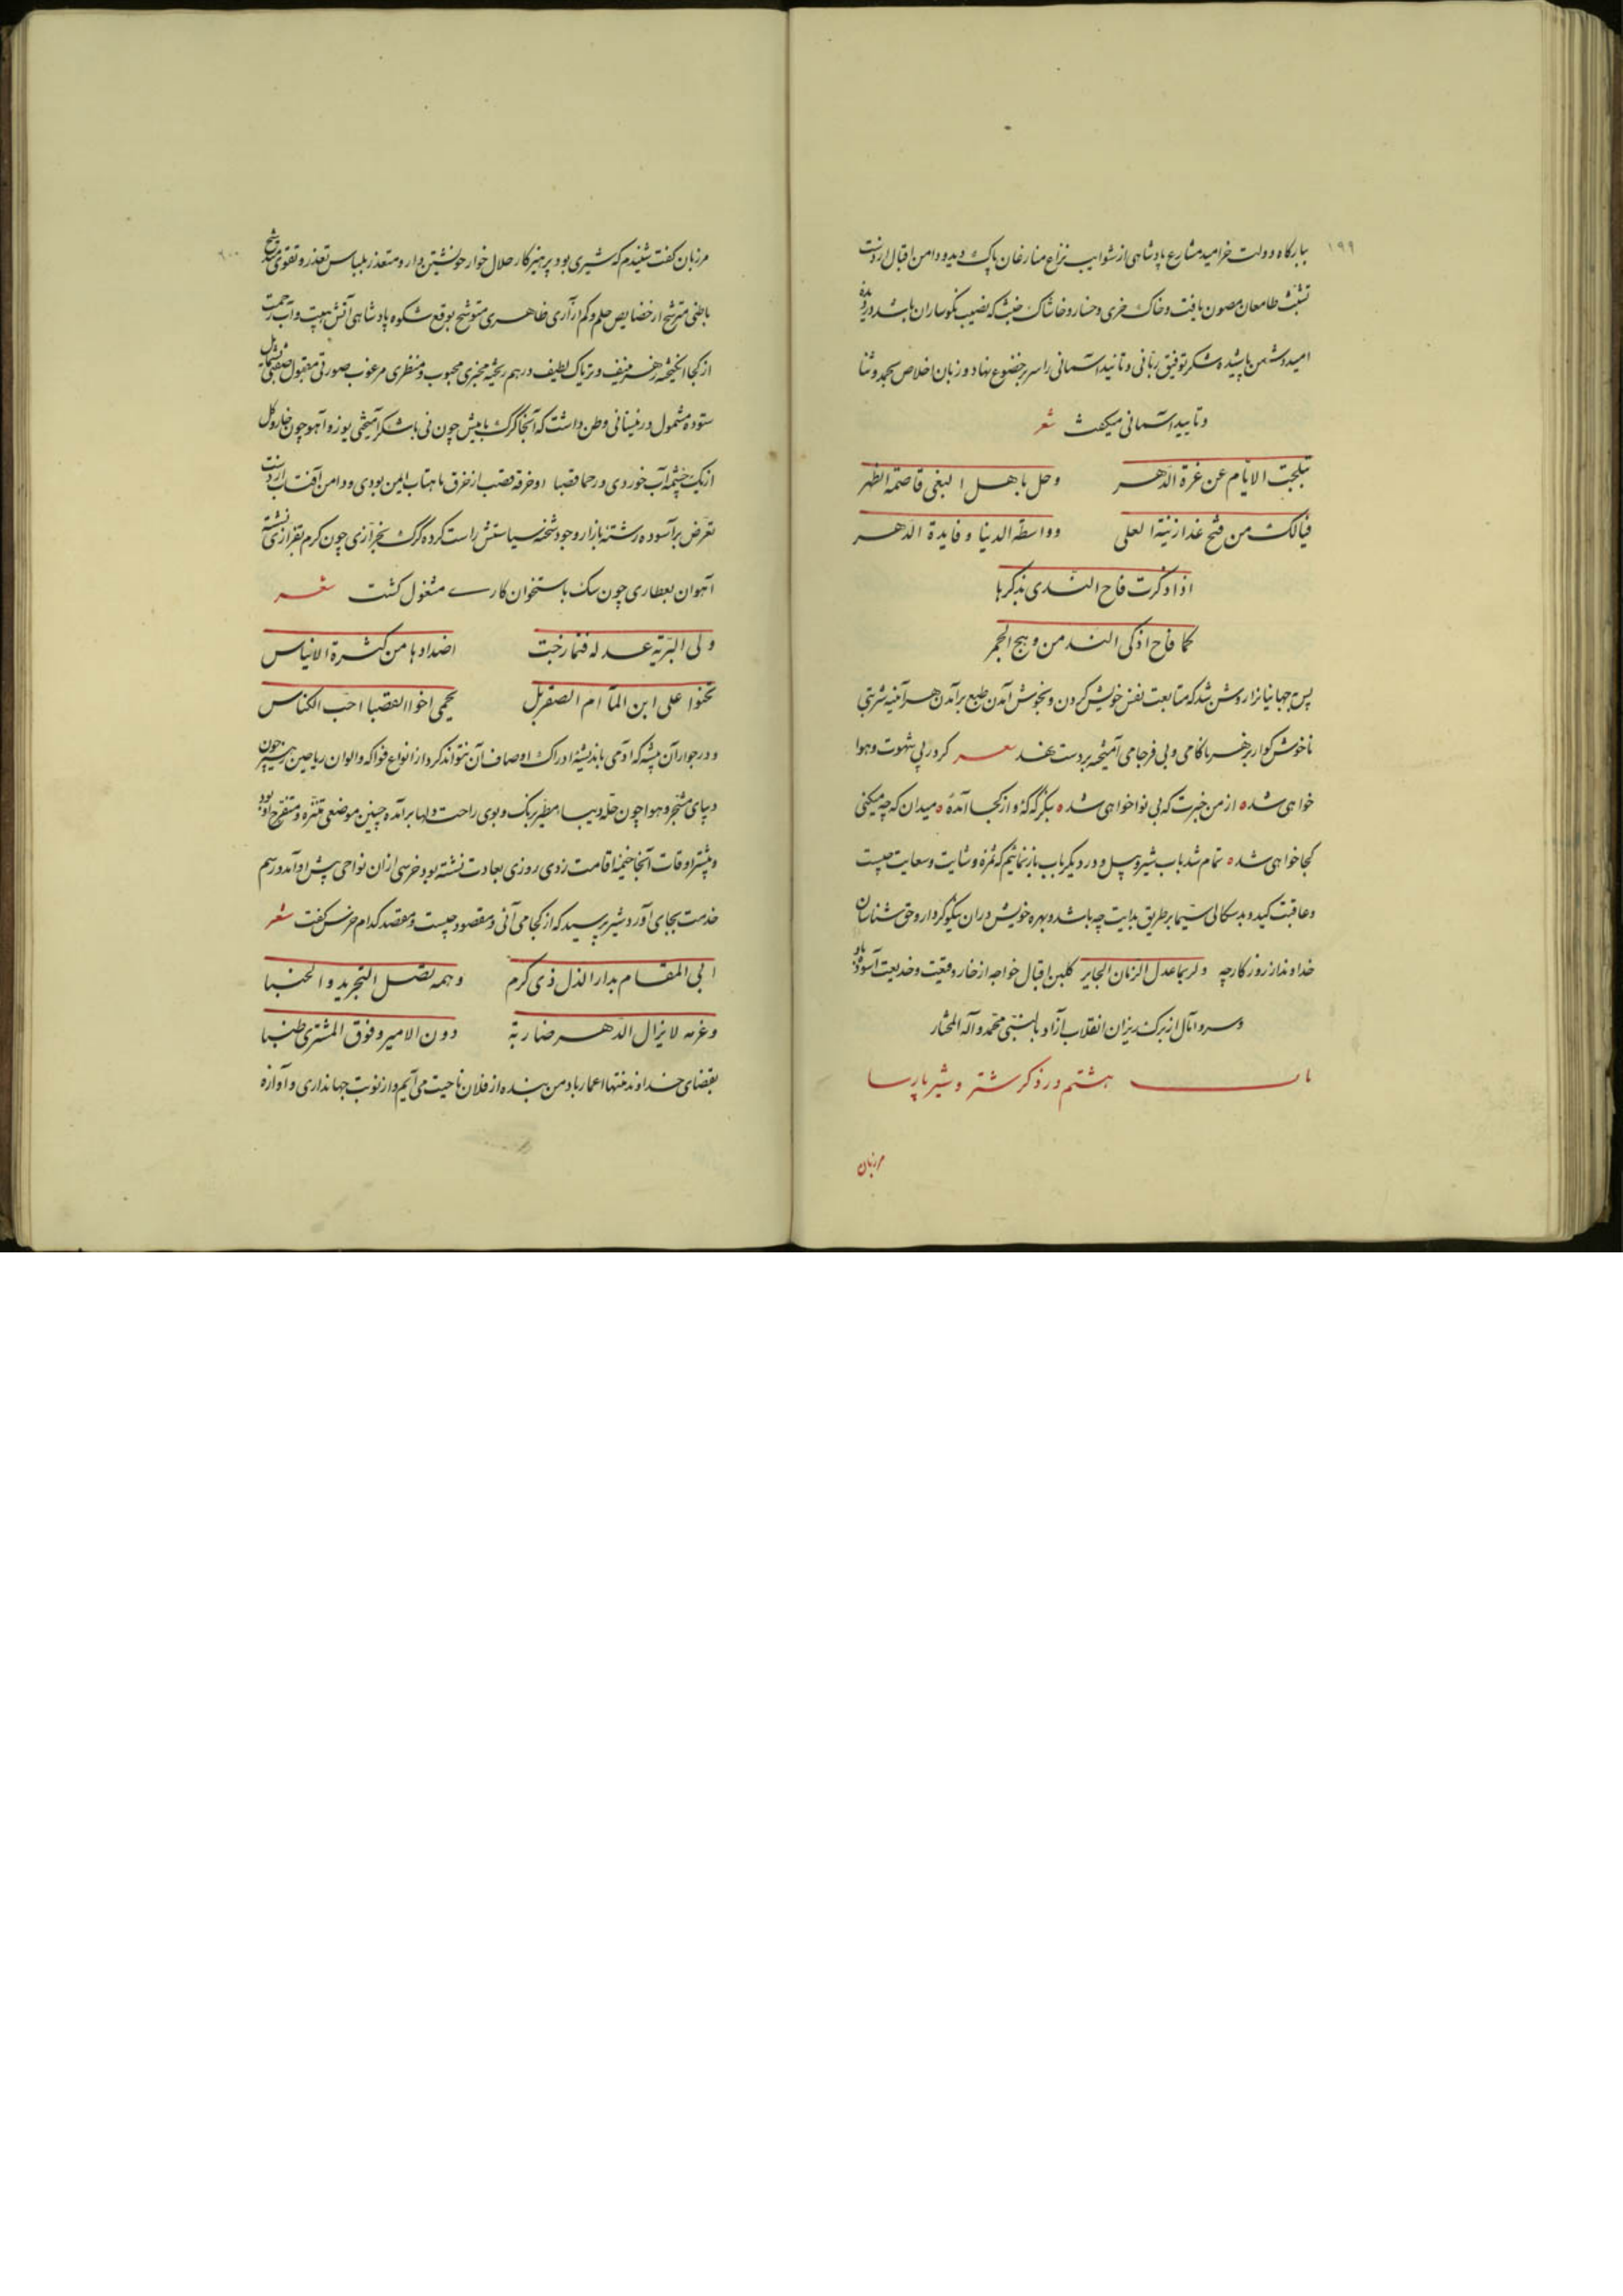 ۱۹۹
ببارگاه دولت خرامید مشارع پادشاهی از شوایب نزاع منازعان پاک دید و دامن اقبال از دست
تشبث طامعان مصون یافت و خاک خزی و خسار و خاشاک خبث که نصیب نگوساران باشد در دیده
امید دشمن پاشیده شکر توفیق ربانی و تائید آسمانی را سر بر خضوع نهاد و زبان اخلاص بحمد و ثنا
و تایید آسمانی میگفت شعر
تبلجت الایام عن غرة الدهر وحل باهل البغی قاصمة الظهر
فیالک من فتح غدا زینة العلی وواسطة الدنیا وفایدة الدهر
اذا ذکرت فاح الندی بذکرها
کما فاح اذکی الند من وهج الجمر
پس جهانیانرا روشن شد که متابعت نفس خویش کردن و بخوش آمدن طبع برآمدن هر آینه شربتی
ناخوش گوار بزهر ناکامی و بی فرجامی آمیخته بر دست نهد شعر گر در پی شهوت و هوا
خواهی شد ه از من خبرت که بی نوا خواهی شد ه بنگر که که ٔ و از کجا آمده ٔ ه میدان که چه میکنی
کجا خواهی شد ه تمام شد باب شیر و پیل و در دیگر باب باز نمائیم که ثمره وشایت و سعایت چیست
و عاقبت کید و بدسگالی سیما بر طریق بدایت چه باشد و بهره خویش در آن نیکو کردار و حق شناسان
خداوند از روزگار چه ولربما عدل الزمان الجایر گلبن اقبال خواجه از خار وقیعت و خدیعت آسوده باد
و سرو آمال از برگ ریزان انقلاب آزاد بالنبی محمد و آله المختار
باب هشتم در ذکر شتر و شیر پارسا
مرزبان
۲۰۰
مرزبان گفت شنیدم که شیری بود پرهیزکار حلال خوار خویشتن دار و متعذر بلباس تعذر و تقوی متوشح
باطنی مترشح از خصایص حلم و کم آزاری ظاهری متوشح بوقع شکوه پادشاهی آتش هیبت و آب رحمت
از کجا انگیخته زهر عنیف و تریاک لطیف در هم ریخته مخبری محبوب و منظری مرغوب صورتی مقبول صفتی بشمایل
ستوده مشمول در نیستانی وطن داشت که آنجا گرگ با میش چون نی با شکر آمیختی یوز و آهو چون خار و گل
از یک چشمه آب خوردی و در حماء قصبا او خرقه قصب از خرق ماهتاب ایمن بودی و دامن آفتاب از دست
تعرض بر آسوده رشته بازار وجود شحنه سیاستش راست کرده گرگ بخرازی چون کرم بقزازی نشسته
آهوان بعطاری چون سگ باستخوان کاری مشغول گشت شعر
ولی البریة عدله فتمازجت اضدادها من کثرة الایناس
تحنوا علی ابن المآء ام الصقر بل یحمی اخوا القصباء اخت الکناس
و در جوار آن بیشه که آدمی باندیشه ادراک اوصاف آن نتواند کرد از انواع فواکه و الوان ریاحین زمین چون
دیبای مشجر و هوا چون حله دیبا مطیر برنگ و بوی راحت دلها برآمده چنین موضعی متنزه و متفرج او بود
و بیشتر اوقات آنجا خیمه اقامت زدی روزی بعادت نشسته بود خرسی از آن نواحی پیش او آمد و رسم
خدمت بجای آورد شیر پرسید که از کجا می آئی و مقصود چیست و مقصد کدام خرس گفت شعر
ابی المقام بدار الذل ذی کرم وهمه تصل التجرید والخببا
وعزمه لا یزال الدهر ضاربة دون الامیر وفوق المشتری طنبا
بقضای خداوند منتها اعمار باد من بنده از فلان ناحیت می آیم و از نوبت جهانداری و آوازه